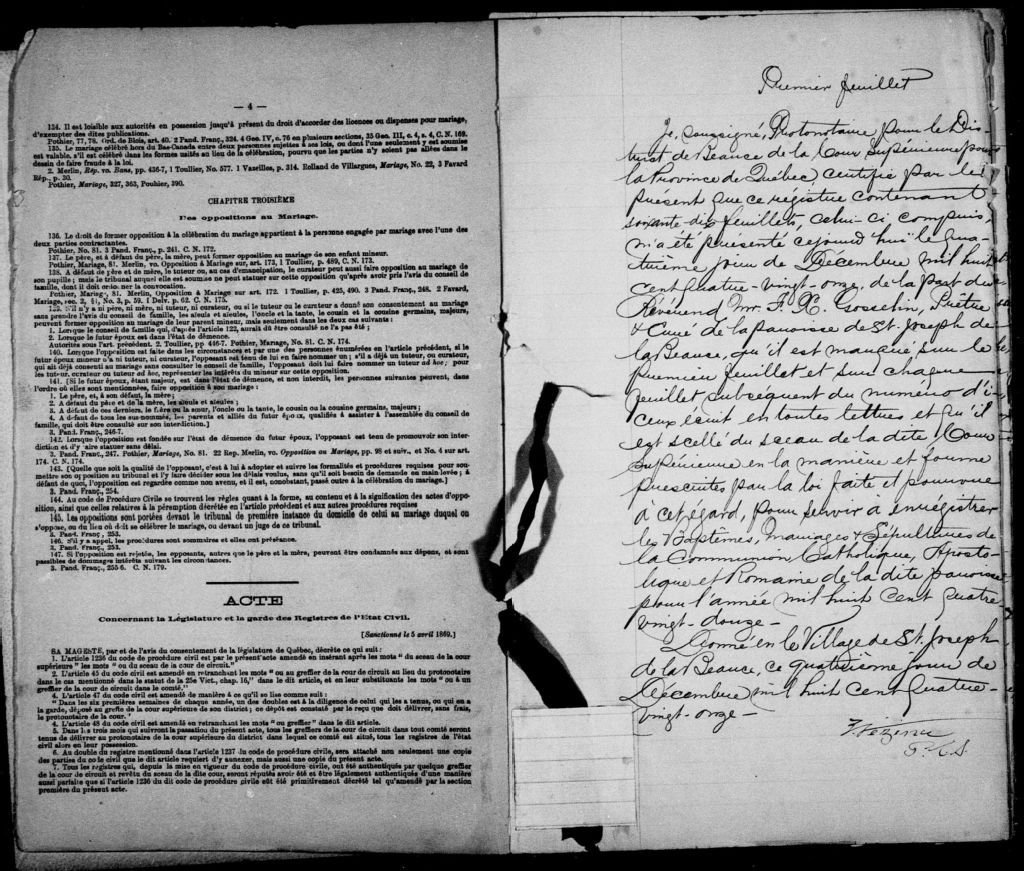 — 4 —
134. Il est loisible aux autorités en possession jusqu'à présent du droit d'accorder des licences ou dispenses pour mariage,
d'exempter des dites publications.
Pothier, 77, 78. Ord. de Blois, art. 40. 2 Pand. Franç., 324. 4 Geo. IV, c. 76 en plusieurs sections, 35 Geo. III, c. 4, s. 4, C. N. 169.
135. Le mariage célébré hors du Bas-Canada entre deux personnes sujettes à ses lois, ou dont l'une seulement y est soumise
est valable, s'il est célébré dans les formes usitées au lieu de la célébration, pourvu que les parties n'y soient pas allées dans le
dessein de faire fraude à la loi.
2. Merlin, Rép. vo. Bans, pp. 436-7, 1 Toullier, No. 577. 1 Vazeilles, p. 314. Rolland de Villargues, Mariage, No. 22, 3 Favard
Rép., p. 30.
Pothier, Mariage, 327, 363, Pouhier, 390.
CHAPITRE TROISIÈME
Des oppositions au Mariage.
136. Le droit de former opposition à la célébration du mariage appartient à la personne engagée par mariage avec l'une des
deux parties contractantes.
Pothier, No. 81. 3 Pand. Franç., p. 241. C. N. 172.
137. Le père, et à défaut du père, la mère, peut former opposition au mariage de son enfant mineur.
Pothier, Mariage, 81. Merlin, vo. Opposition à Mariage sur art. 173, 1 Toullier, p. 489, C. N. 173.
138. A défaut de père et de mère, le tuteur ou, au cas d'émancipation, le curateur peut aussi faire opposition au mariage de
son pupille; mais le tribunal auquel elle est soumise ne peut statuer sur cette opposition qu'après avoir pris l'avis du conseil de
famille, dont il doit ordonner la convocation.
Pothier, Mariage, 81. Merlin, Opposition à Mariage sur art. 172. 1 Toullier, p. 425, 490. 3 Pand. Franç., 248. 2 Favard,
Mariage, sec. 2, §1, No. 3, p. 59. 1 Delv. p. 62. C. N. 175.
139. S'il n'y a ni père, ni mère, ni tuteur, ni curateur, ou si le tuteur ou le curateur a donné son consentement au mariage
sans prendre l'avis du conseil de famille, les aïeuls et aïeules, l'oncle et la tante, le cousin et la cousine germains, majeurs,
peuvent former opposition au mariage de leur parent mineur, mais seulement dans les deux cas suivants:
1. Lorsque le conseil de famille qui, d'après l'article 122, aurait dû être consulté ne l'a pas été;
2. Lorsque le futur époux est dans l'état de démence.
Autorités sous l'art. précédent. 2. Toullier, pp 446-7. Pothier, Mariage, No. 81. C. N. 174.
140. Lorsque l'opposition est faite dans les circonstances et par une des personnes énumérées en l'article précédent, si le
futur époux mineur n'a ni tuteur, ni curateur, l'opposant est tenu de lui en faire nommer un; s'il a déjà un tuteur, ou curateur,
qui ait déjà consenti au mariage sans consulter le conseil de famille, l'opposant doit lui faire nommer un tuteur ad hoc, pour
les tuteur, curateur ou tuteur ad hoc, représenter les intérêts du mineur sur cette opposition.
141. [Si le futur époux, étant majeur, est dans l'état de démence, et non interdit, les personnes suivantes peuvent, dans
l'ordre où elles sont mentionnées, faire opposition à son mariage:
1. Le père, et, à son défaut, la mère;
2. A défaut du père et de la mère, les aïeuls et aïeules;
3. A défaut de ces derniers, le frère ou la sœur, l'oncle ou la tante, le cousin ou la cousine germains, majeurs;
4. A défaut de tous les sus-nommés, les parents et alliés du futur époux, qualifiés à assister à l'assemblée du conseil de
famille, qui doit être consulté sur son interdiction.]
3. Pand. Franç., 246-7.
142. Lorsque l'opposition est fondée sur l'état de démence du futur époux, l'opposant est tenu de promouvoir son inter-
diction et d'y faire statuer sans délai.
3. Pand. Franç., 247. Pothier, Mariage, No. 81. 22 Rep. Merlin, vo. Opposition au Mariage, pp. 98 et suiv., et No. 4 sur art.
174. C. N. 174.
143. [Quelle que soit la qualité de l'opposant, c'est à lui à adopter et suivre les formalités et procédures requises pour sou-
mettre son opposition au tribunal et l'y faire décider sous les délais voulus, sans qu'il soit besoin de demande en main levée; à
défaut de quoi, l'opposition est regardée comme non avenu, et il est, nonobstant, passé outre à la célébration du mariage.]
3. Pand. Franç., 254.
144. Au code de Procédure Civile se trouvent les règles quant à la forme, au contenu et à la signification des actes d'oppo-
sition, ainsi que celles relatives à la péremption décrétée en l'article précédent et aux autres procédures requises
145. Les oppositions sont portées devant le tribunal de première instance du domicile de celui au mariage duquel on
s'oppose, ou du lieu où doit se célébrer le mariage, ou devant un juge de ce tribunal.
3. Pand. Franç., 253.
146. S'il y a appel, les procédures sont sommaires et elles ont préséance.
3. Pand. Franç., 253.
147. Si l'opposition est rejetée, les opposants, autres que le père et la mère, peuvent être condamnés aux dépens, et sont
passibles de dommages intérêts suivant les circonstances.
3. Pand. Franç., 255-6. C. N. 179.
ACTE
Concernant la Législature et la garde des Registres de l'Etat Civil.
[Sanctionné le 5 avril 1869.]
SA MAGESTE, par et de l'avis du consentement de la législature de Québec, décrète ce qui suit:
1. L'article 1236 du code de procédure civil est par le présent acte amendé en insérant après les mots "du sceau de la cour
supérieure" les mots "ou du sceau de la cour de circuit."
2. L'article 45 du code civil est amendé en retranchant les mots "ou au greffier de la cour de circuit au lieu du protonotaire
dans le cas mentionné dans le statut de la 25e Vict., chap. 16," dans le dit article, et en leur substituants les mots "ou à un
greffier de la cour de circuit dans le comté."
4. L'article 47 du code civil est amendé de manière à ce qu'il se lise comme suit:
"Dans les six premières semaines de chaque année, un des doubles est à la diligence de celui qui les a tenus, ou qui en a
la garde, déposé au greffe de la cour supérieure de son district; ce dépôt est constaté par le reçu que doit délivrer, sans frais,
le protonotaire de la cour."
4. L'article 48 du code civil est amendé en retranchant les mots "ou greffier" dans le dit article.
5. Dans les trois mois qui suivront la passation du présent acte, tous les greffiers de la cour de circuit dans tout comté seront
tenus de délivrer au protonotaire de la cour supérieure du district dans lequel ce comté est situé, tous les registres de l'état
civil alors en leur possession.
6. Au double du registre mentionné dans l'article 1237 du code de procédure civile, sera attaché non seulement une copie
des parties du code civil que le dit article requiert d'y annexer, mais aussi une copie du présent acte.
7. Tous les registres qui, depuis la mise en vigueur du code de procédure civil, ont été authentiqués par quelque greffier
de la cour de circuit et revêtu du sceau de la dite cour, seront réputés avoir été et être légalement authentiqués d'une manière
aussi parfaite que si l'article 1236 du dit code de procédure civile eût été primitivement décrété tel qu'amendé par la section
première du présent acte.
Premier feuillet
Je, soussigné, Protonotaire pour le Dis-
trict de Beauce de la Cour Supérieure pour
la Province de Québec, certifie par le
présent que ce régistre contenant
soixante-dix feuillets, celui-ci compris,
m'a été présenté cejourd'hui le qua-
trième jour de Décembre mil huit
cent quatre-vingt-onze, de la part du
Révérend Mr F. X. Gosselin, Prêtre
& Curé de la paroisse de St. Joseph de
la Beauce, qu'il est marqué sur le
premier feuillet et sur chaque
feuillet subséquent du numéro d'i-
ceux écrit en toutes lettres et qu'il
est scellé du sceau de la dite Cour
Supérieure en la manière et forme
prescrites par la loi faite et pourvue
à cet égard, pour servir à enrégistrer
les Baptêmes, Mariages & Sépultures de
la Communion Catholique, Aposto-
lique et Romaine de la dite paroisse
pour l'année mil huit cent quatre-
vingt-douze -
Donné en le Village de St. Joseph
de la Beauce, ce quatrième jour de
Décembre mil huit cent quatre-
vingt-onze -